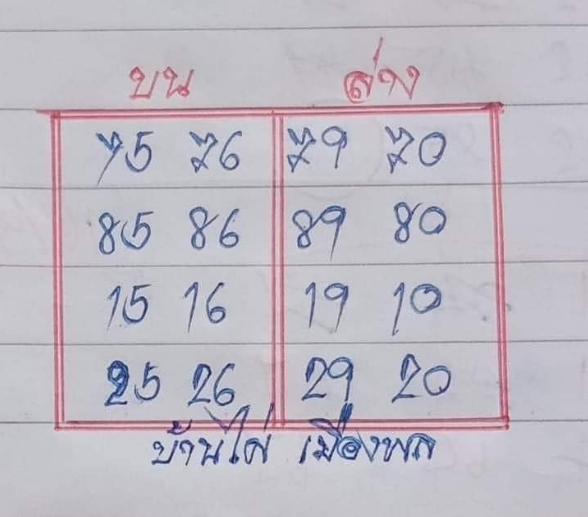 บน ล่าง
75 76 79 70
85 86 89 80
15 16 19 10
25 26 29 20
บ้านไผ่ เมืองพล